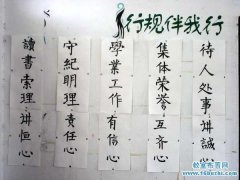 行规伴我行
待人处事讲誠心
集体荣誉互齐心
學業工作有信心
守紀明理責任心
讀書索理讲恒心
教室布置网